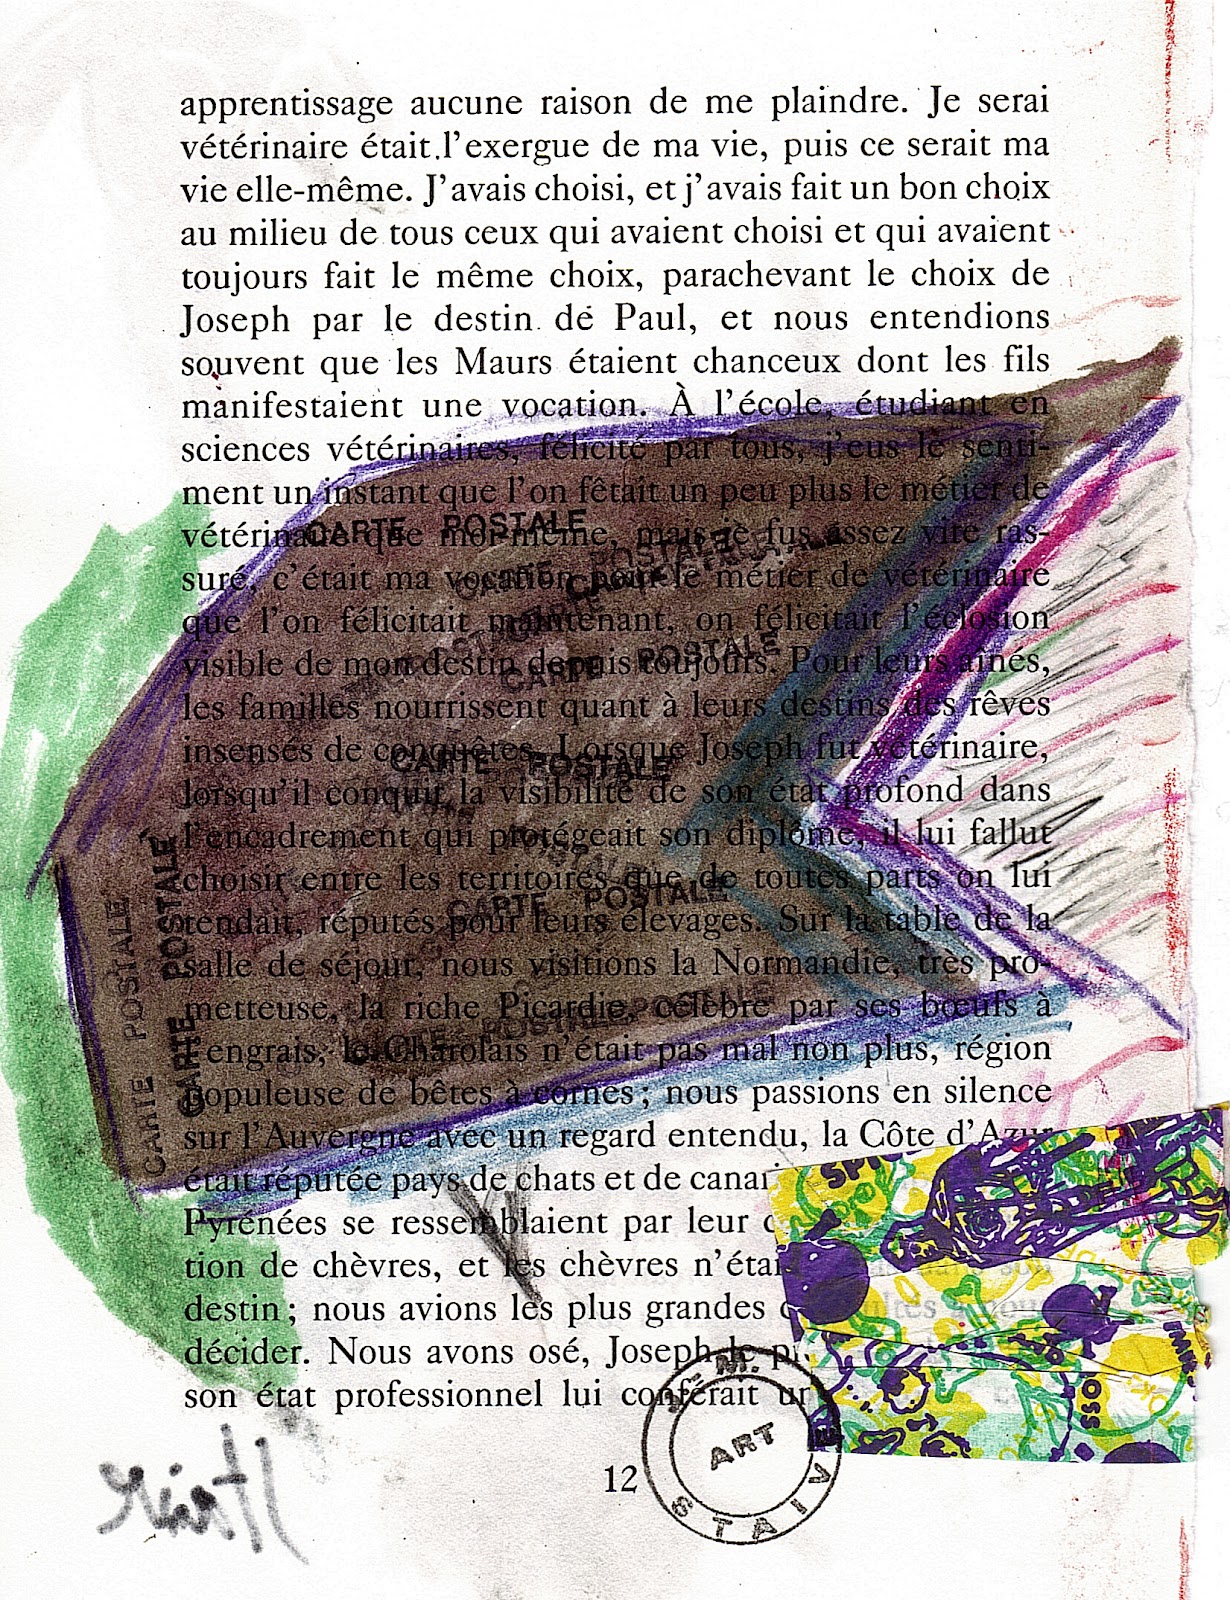 apprentissage aucune raison de me plaindre. Je serai
vétérinaire était l’exergue de ma vie, puis ce serait ma
vie elle-même. J’avais choisi, et j’avais fait un bon choix
au milieu de tous ceux qui avaient choisi et qui avaient
toujours fait le même choix, parachevant le choix de
Joseph par le destin de Paul, et nous entendions
souvent que les Maurs étaient chanceux dont les fils
manifestaient une vocation. À l’école, étudiant en
sciences vétérinaires, félicité par tous, j’eus le senti-
ment un instant que l’on fêtait un peu plus le métier de
vétérinaire que moi-même, mais je fus assez vite ras-
suré, c’était ma vocation pour le métier de vétérinaire
que l’on félicitait maintenant, on félicitait l’éclosion
visible de mon destin depuis toujours. Pour leurs aînés,
les familles nourrissent quant à leurs destins des rêves
insensés de conquêtes. Lorsque Joseph fut vétérinaire,
lorsqu’il conquit la visibilité de son état profond dans
l’encadrement qui protégeait son diplôme, il lui fallut
choisir entre les territoires que de toutes parts on lui
tendait, réputés pour leurs élevages. Sur la table de la
salle de séjour, nous visitions la Normandie, très pro-
metteuse, la riche Picardie, célèbre par ses bœufs à
l’engrais, le Charolais n’était pas mal non plus, région
populeuse de bêtes à cornes ; nous passions en silence
sur l’Auvergne avec un regard entendu, la Côte d’Azur
était réputée pays de chats et de canar
Pyrénées se ressemblaient par leur
tion de chèvres, et les chèvres n’étai
destin ; nous avions les plus grandes
décider. Nous avons osé, Joseph le
son état professionnel lui conférait
12
CARTE POSTALE
CARTE POSTALE
CARTE POSTALE
CARTE POSTALE
CARTE POSTALE
CARTE POSTALE
CARTE POSTALE
CARTE POSTALE
ART